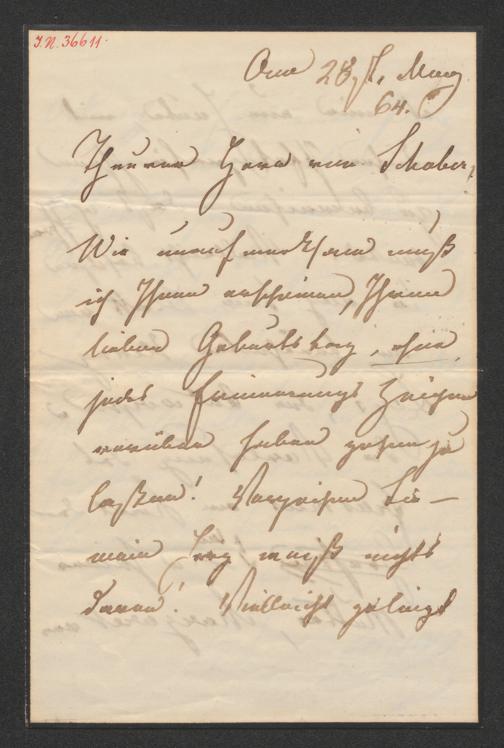 J.N. 36611.
28/5. May
64.
Theurer Herr von Schober,
Wie unaufmerksam muß
ich Ihnen erscheinen, Ihren
lieben Geburtstag, ohne
jedes Erinnerungs Zeichen
vorüber haben gehen zu
laßen! Verzeihen Sie —
mein Herz weiß nichts
davon! Vielleicht gelingt